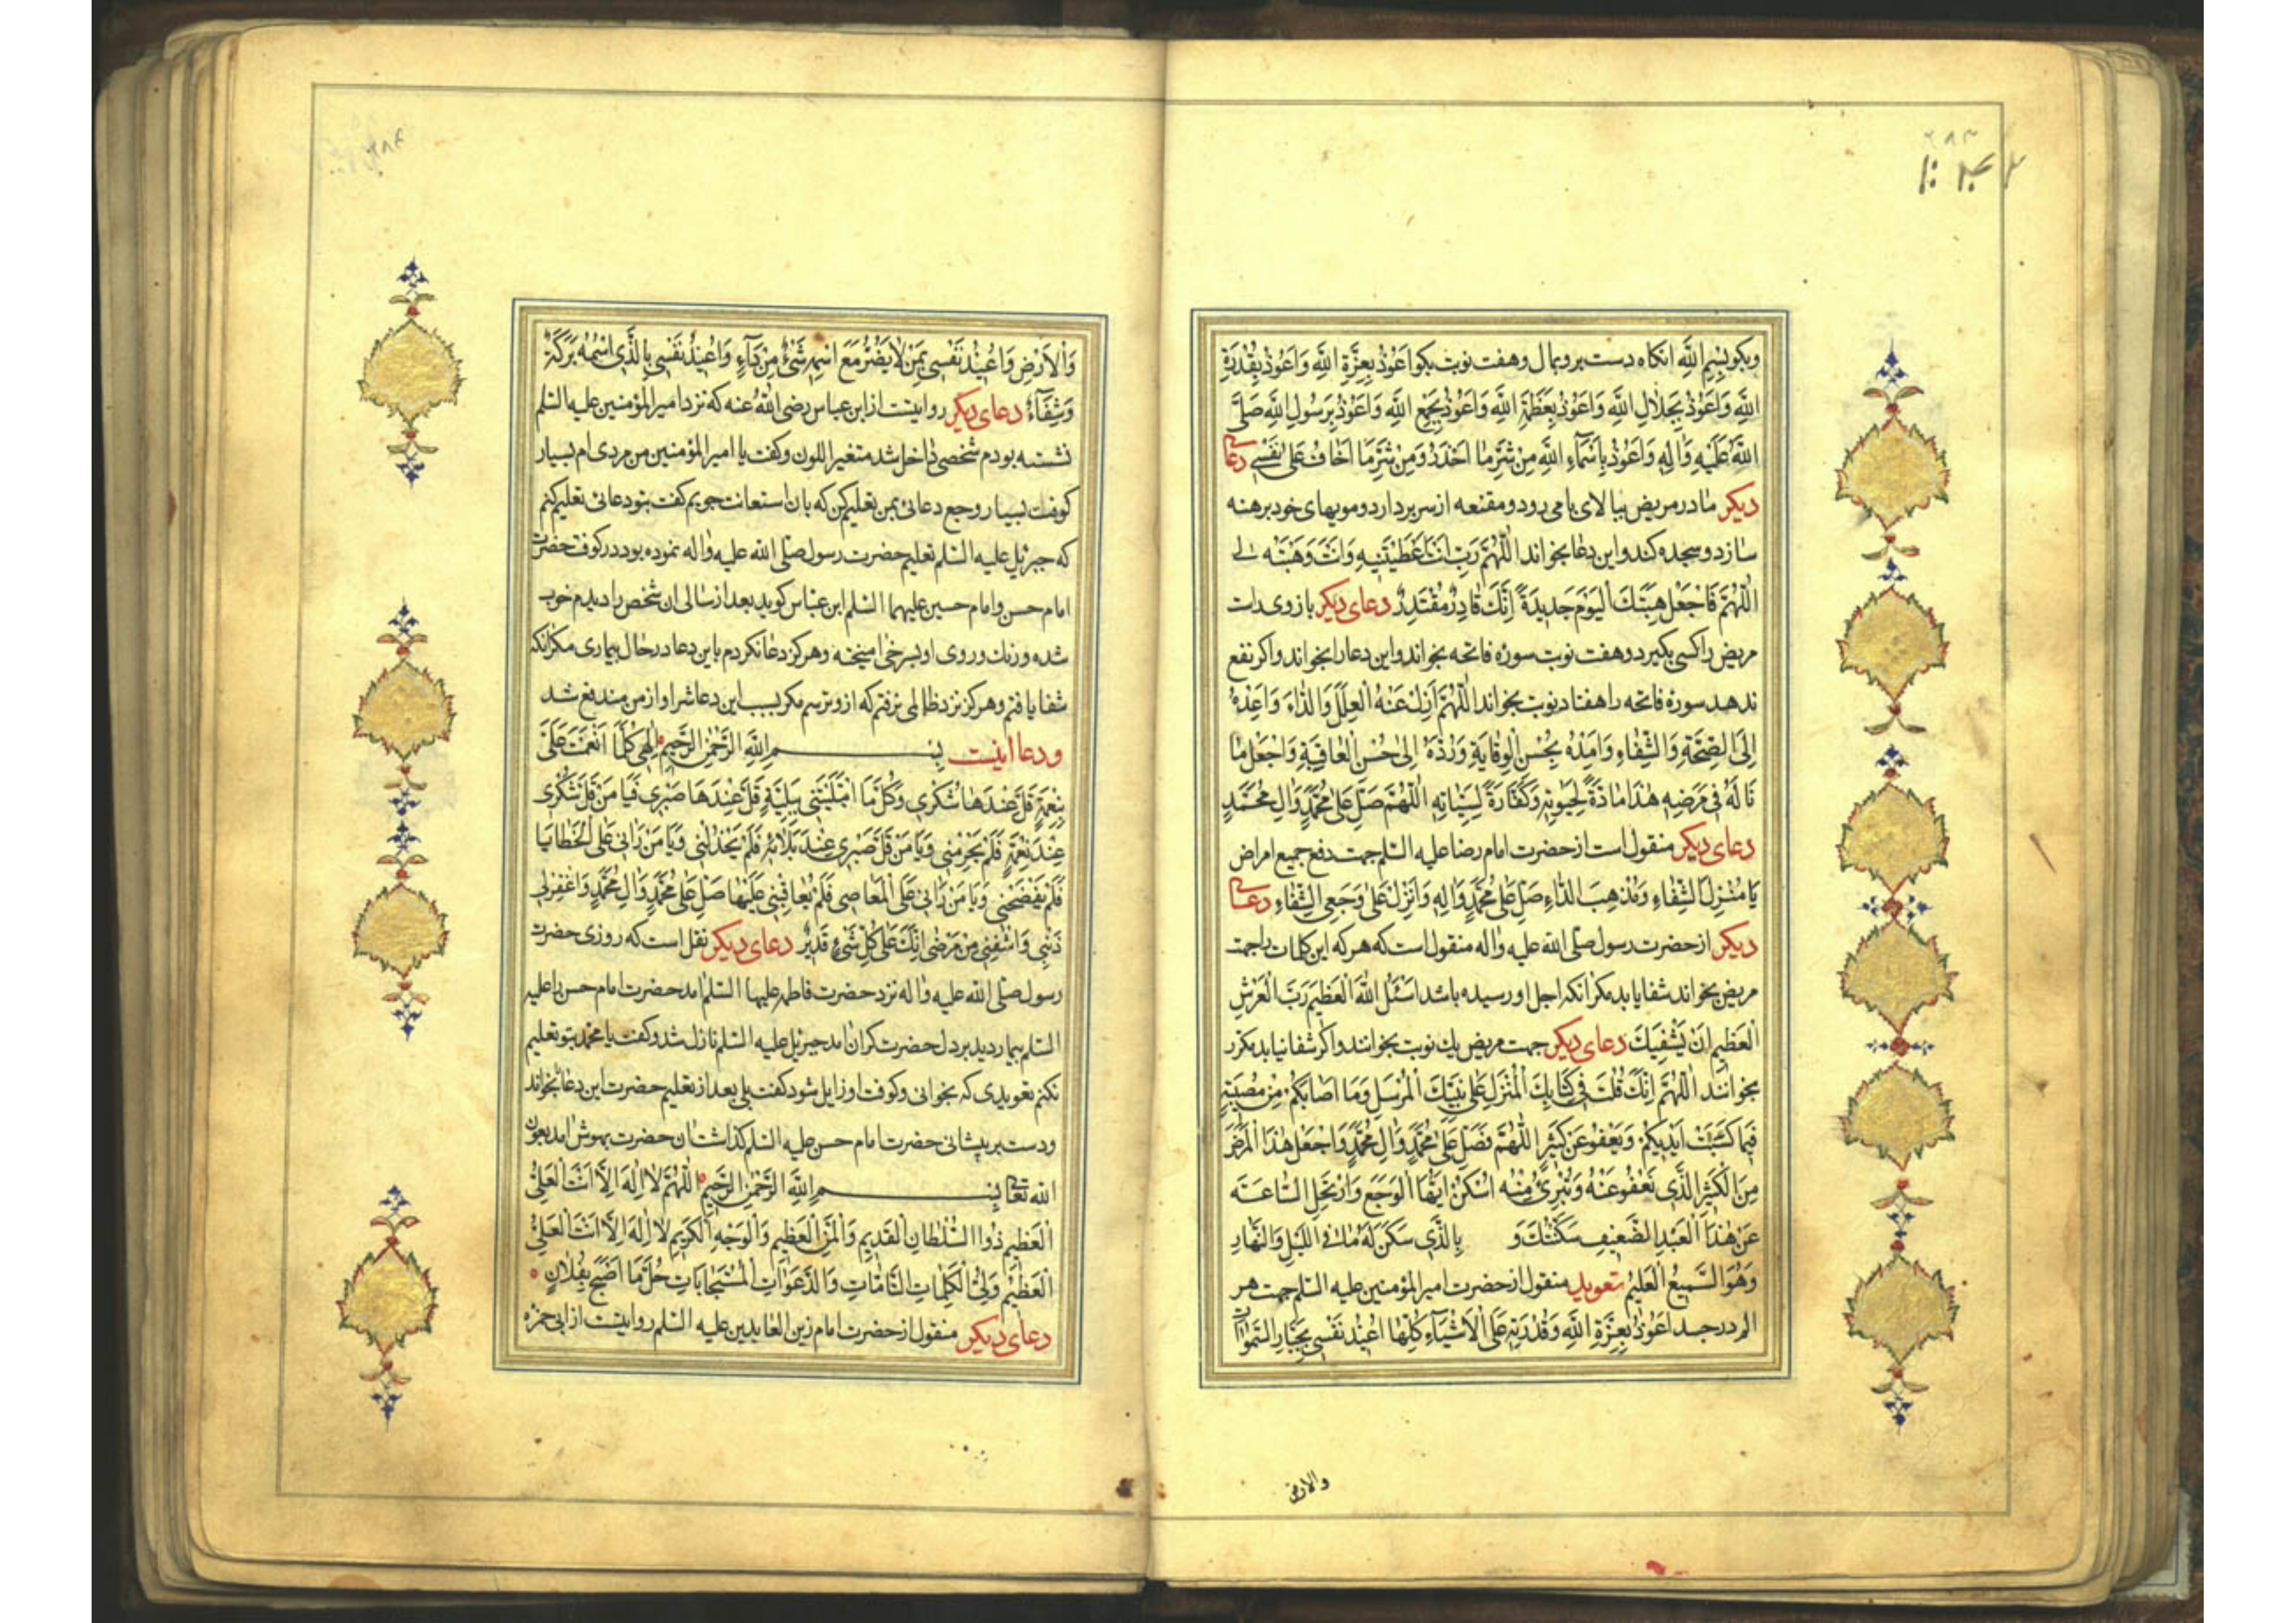 وبکو بِسْمِ اللَّهِ انکاه دست برو بمال وهفت نوبت بکو اَعُوذُ بِعِزَّةِ اللَّهِ وَاَعُوذُ بِقُدْرَةِ
اللَّهِ وَاَعُوذُ بِجَلَالِ اللَّهِ وَاَعُوذُ بِعَظَمَةِ اللَّهِ وَاَعُوذُ بِجَمْعِ اللَّهِ وَاَعُوذُ بِرَسُولِ اللَّهِ صَلَّى
اللَّهُ عَلَيْهِ وَاٰلِهِ وَاَعُوذُ بِاَسْمَآءِ اللَّهِ مِنْ شَرِّ مَا اَحْذَرُ وَمِنْ شَرِّ مَا اَخَافُ عَلٰى نَفْسِي دعای
دیکر مادر مریض ببالای بام رود ومقنعه از سر بردارد ومویهای خود برهنه
سازد وسجده کند واین دعا بخواند اَللّٰهُمَّ رَبِّ اَنْتَ اَعْطَيْتَنِيهِ وَاَنْتَ وَهَبْتَهُ لي
اَللّٰهُمَّ فَاجْعَلْ هِبَتَكَ الْيَوْمَ جَدِيدَةً اِنَّكَ قَادِرٌ مُقْتَدِرٌ دعای دیکر بازوی راست
مریض را کسی بکیرد وهفت نوبت سورۀ فاتحه بخواند واین دعا را بخواند واکر نفع
ندهد سورۀ فاتحه را هفتاد نوبت بخواند اَللّٰهُمَّ اَزِلْ عَنْهُ الْعِلَلَ وَالدَّاءَ وَاَعِدْهُ
اِلَى الصِّحَّةِ وَالشِّفَاءِ وَاَمِدَّهُ بِحُسْنِ الْوِقَايَةِ وَرُدَّهُ اِلٰى حُسْنِ الْعَافِيَةِ وَاجْعَلْ مَا
نَالَهُ فِي مَرَضِهِ هٰذَا مَادَّةً لِحَيٰوتِهِ وَكَفَّارَةً لِسَيِّاٰتِهِ اَللّٰهُمَّ صَلِّ عَلٰى مُحَمَّدٍ وَاٰلِ مُحَمَّدٍ
دعای دیکر منقول است از حضرت امام رضا علیه السلم جهت دفع جمیع امراض
يَا مُنْزِلَ الشِّفَاءِ وَمُذْهِبَ الدَّاءِ صَلِّ عَلٰى مُحَمَّدٍ وَاٰلِهِ وَاَنْزِلْ عَلٰى وَجَعِي الشِّفَاءَ دعای
دیکر از حضرت رسول صلّی الله علیه واله منقول است که هر که این کلمات را جهت
مریض بخواند شفا یابد مکر انکه اجل او رسیده باشد اَسْئَلُ اللّٰهَ الْعَظِيمَ رَبَّ الْعَرْشِ
الْعَظِيمِ اَنْ يَشْفِيَكَ دعای دیکر جهت مریض یك نوبت بخوانند واکر شفا نیابد مکرر
بخوانند اَللّٰهُمَّ اِنَّكَ قُلْتَ فِي كِتَابِكَ الْمُنْزَلِ عَلٰى نَبِيِّكَ الْمُرْسَلِ وَمَا اَصَابَكُمْ مِنْ مُصِيبَةٍ
فَبِمَا كَسَبَتْ اَيْدِيكُمْ وَيَعْفُو عَنْ كَثِيرٍ اَللّٰهُمَّ فَصَلِّ عَلٰى مُحَمَّدٍ وَاٰلِ مُحَمَّدٍ وَاجْعَلْ هٰذَا الْمَرَضَ
مِنَ الْكَثِيرِ الَّذِي تَعْفُو عَنْهُ وَتُبْرِئُ مِنْهُ اُسْكُنْ اَيُّهَا الْوَجَعُ وَارْتَحِلِ السَّاعَةَ
عَنْ هٰذَا الْعَبْدِ الضَّعِيفِ سَكَّنْتُكَ وَ بِالَّذِي سَكَنَ لَهُ مَا فِي اللَّيْلِ وَالنَّهَارِ
وَهُوَ السَّمِيعُ الْعَلِيمُ تعویذ منقول از حضرت امیر المؤمنین علیه السلم جهت هر
الم در جسد اَعُوذُ بِعِزَّةِ اللَّهِ وَقُدْرَتِهِ عَلَى الْاَشْيَآءِ كُلِّهَا اُعِيذُ نَفْسِي بِجَبَّارِ السَّمٰوَاتِ
والارض
وَالْاَرْضِ وَاُعِيذُ نَفْسِي بِمَنْ لَا يَضُرُّ مَعَ اسْمِهِ شَيْءٌ مِنْ دَآءٍ وَاُعِيذُ نَفْسِي بِالَّذِي اسْمُهُ بَرَكَةٌ
وَشِفَآءٌ دعای دیکر روایتست از ابن عباس رضی اللّٰهُ عنه که نزد امیر المؤمنین علیه السلم
نشسته بودم شخصی داخل شد متغیر اللون وکفت یا امیر المؤمنین من مردی ام بسیار
کوفت بسیار وجع دعائی بمن تعلیم کن که بان استعانت جویم کفت بتو دعائی تعلیم کنم
که جبرئیل علیه السلم تعلیم حضرت رسول صلّی الله علیه واله نموده بود در کوفت حضرت
امام حسن وامام حسین علیهما السلم ابن عباس کوید بعد از سالی ان شخص را دیدم خوب
شده ورنك وروی او بسرخی امیخته وهرکز دعا نکردم باین دعا در حال بیماری مکر انکه
شفا یافتم وهرکز نزد ظالمی نرفتم که ازو ترسم مکر بسبب این دعا شر او از من مندفع شد
ودعا اینست بِسْمِ اللَّهِ الرَّحْمٰنِ الرَّحِيمِ اِلٰهِي كُلَّمَا اَنْعَمْتَ عَلَيَّ
بِنِعْمَةٍ قَلَّ عِنْدَهَا شُكْرِي وَكُلَّمَا ابْتَلَيْتَنِي بِبَلِيَّةٍ قَلَّ عِنْدَهَا صَبْرِي فَيَا مَنْ قَلَّ شُكْرِي
عِنْدَ نِعْمَتِهِ فَلَمْ يَحْرِمْنِي وَيَا مَنْ قَلَّ صَبْرِي عِنْدَ بَلَائِهِ فَلَمْ يَخْذُلْنِي وَيَا مَنْ رَاٰنِي عَلَى الْخَطَايَا
فَلَمْ يَفْضَحْنِي وَيَا مَنْ رَاٰنِي عَلَى الْمَعَاصِي فَلَمْ يُعَاقِبْنِي عَلَيْهَا صَلِّ عَلٰى مُحَمَّدٍ وَاٰلِ مُحَمَّدٍ وَاغْفِرْ لِي
ذَنْبِي وَاشْفِنِي مِنْ مَرَضِي اِنَّكَ عَلٰى كُلِّ شَيْءٍ قَدِيرٌ دعای دیکر نقل است که روزی حضرت
رسول صلّی الله علیه واله نزد حضرت فاطمه علیها السلم امد حضرت امام حسن را علیه
السلم بیمار دید بر دل حضرت کران امد جبرئیل علیه السلم نازل شد وکفت یا محمد بتو تعلیم
نکنم تعویذی که بخوانی وکوفت او زایل شود کفت بلی بعد از تعلیم حضرت این دعا بخواند
ودست بر پیشانی حضرت امام حسن علیه السلم کذاشت ان حضرت بهوش امد بعون
الله تعالی بِسْمِ اللَّهِ الرَّحْمٰنِ الرَّحِيمِ اَللّٰهُمَّ لَا اِلٰهَ اِلَّا اَنْتَ الْعَلِيُّ
الْعَظِيمُ ذُو السُّلْطَانِ الْقَدِيمِ وَالْمَنِّ الْعَظِيمِ وَالْوَجْهِ الْكَرِيمِ لَا اِلٰهَ اِلَّا اَنْتَ الْعَلِيُّ
الْعَظِيمُ وَلِيُّ الْكَلِمَاتِ التَّامَّاتِ وَالدَّعَوَاتِ الْمُسْتَجَابَاتِ حُلَّ مَا اَصْبَحَ بِفُلَانٍ
دعای دیکر منقول از حضرت امام زین العابدین علیه السلم روایتست از ابی حمزه